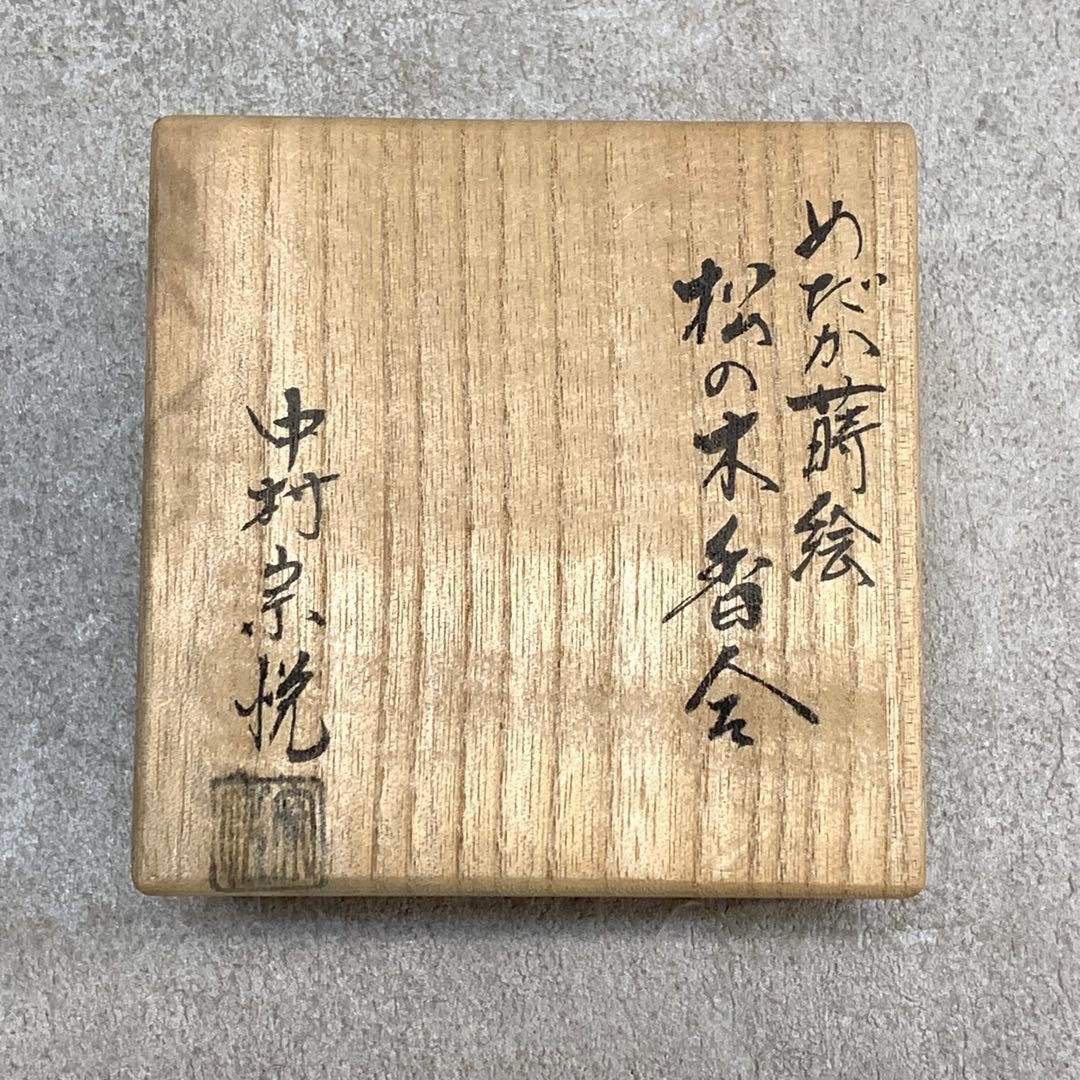 めだか蒔絵
松の木香合
中村宗悦